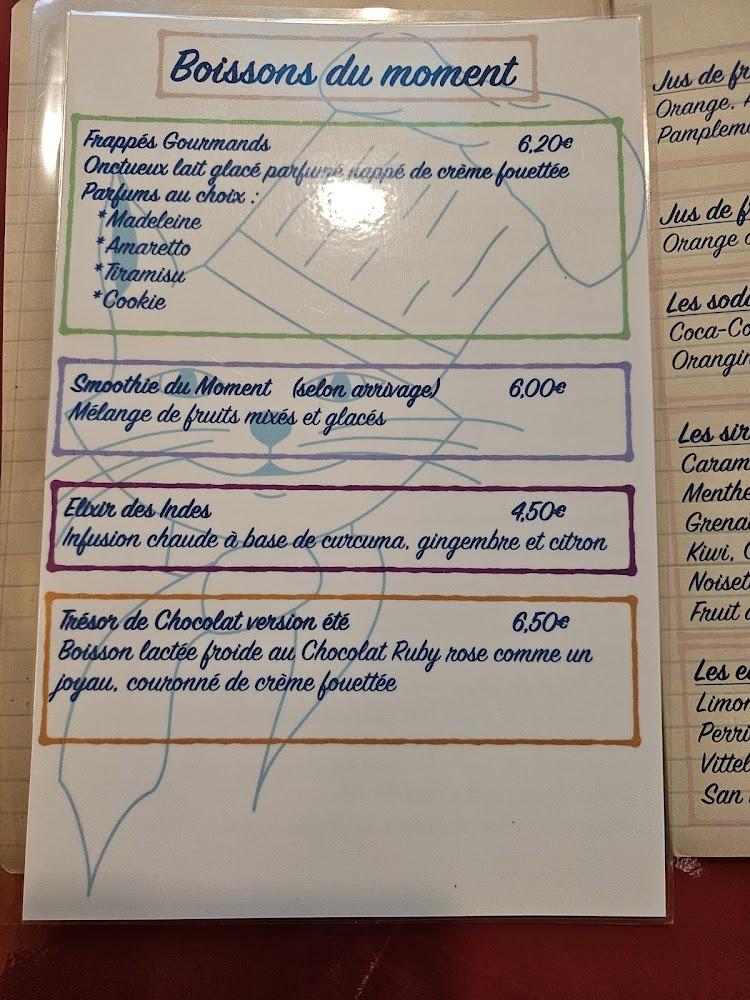 Boissons du moment
Frappés Gourmands 6,20€
Onctueux lait glacé parfumé nappé de crème fouettée
Parfums au choix :
*Madeleine
*Amaretto
*Tiramisu
*Cookie
Smoothie du Moment (selon arrivage) 6,00€
Mélange de fruits mixés et glacés
Elixir des Indes 4,50€
Infusion chaude à base de curcuma, gingembre et citron
Trésor de Chocolat version été 6,50€
Boisson lactée froide au Chocolat Ruby rose comme un
joyau, couronné de crème fouettée
Jus de fr
Orange, A
Pamplemo
Jus de f
Orange
Les soda
Coca-Co
Orangin
Les sir
Caram
Menthe
Grena
Kiwi, C
Noiset
Fruit
Les e
Limon
Perri
Vittel
San